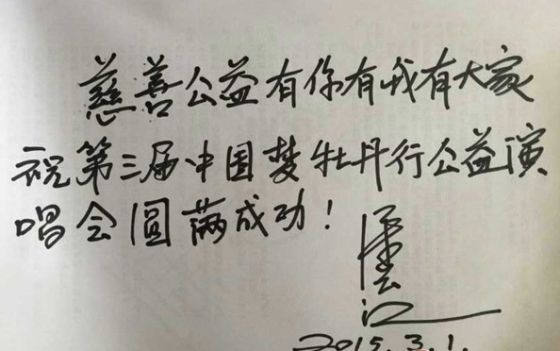 慈善公益有你有我有大家
祝第三届中国梦牡丹行公益演
唱会圆满成功!
2015.3.1.